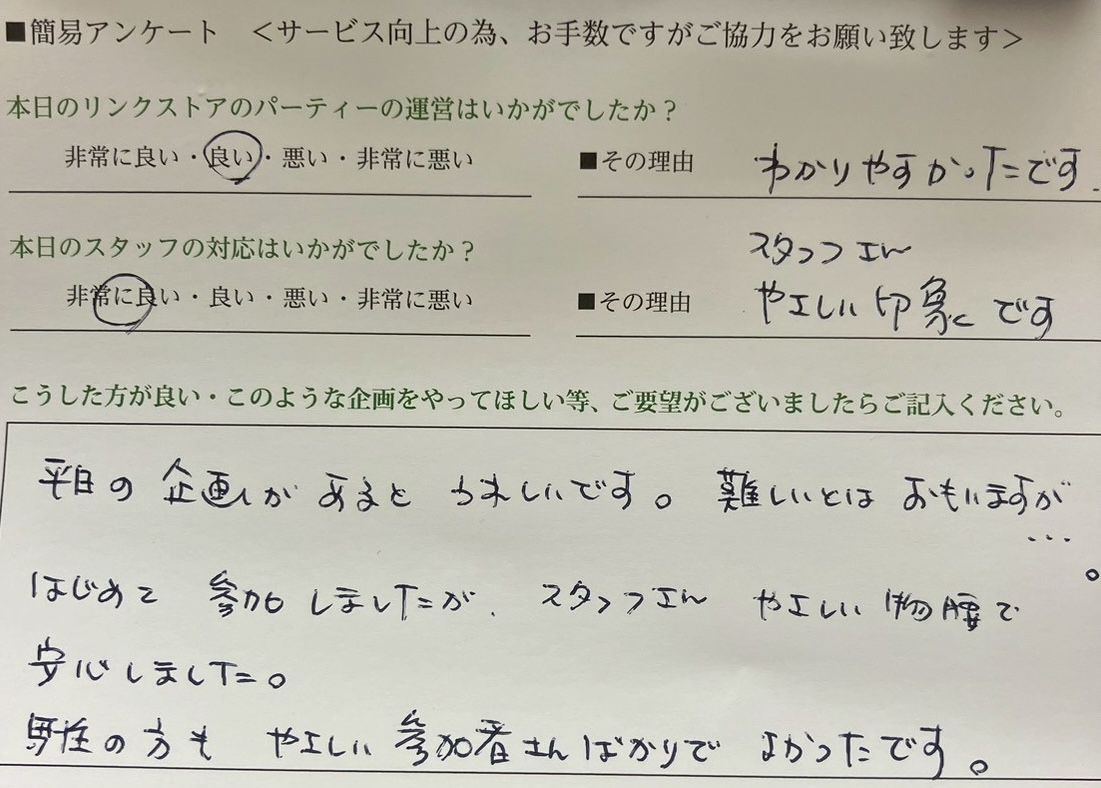 ■簡易アンケート ＜サービス向上の為、お手数ですがご協力をお願い致します＞
本日のリンクストアのパーティーの運営はいかがでしたか？
非常に良い・良い・悪い・非常に悪い ■その理由 わかりやすかったです.
本日のスタッフの対応はいかがでしたか？
スタッフさん
非常に良い・良い・悪い・非常に悪い ■その理由 やさしい印象です
こうした方が良い・このような企画をやってほしい等、ご要望がございましたらご記入ください。
平日の企画があるとうれしいです。難しいとはおもいますが…。
はじめて参加しましたが、スタッフさんやさしい物腰で
安心しました。
男性の方もやさしい参加者さんばかりでよかったです。